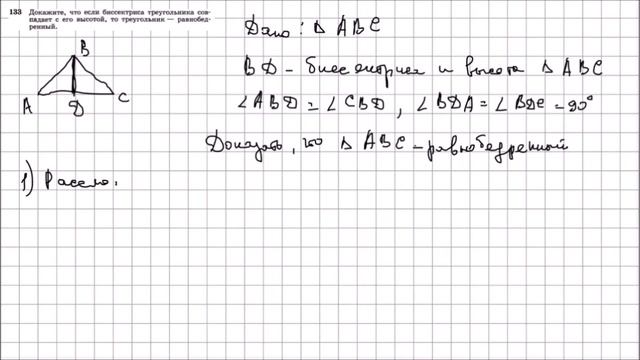 133 Докажите, что если биссектриса треугольника сов-
падает с его высотой, то треугольник — равнобед-
ренный.
B
A
D
C
Дано: Δ ABC
BD - биссектриса и высота Δ ABC
∠ABD = ∠CBD, ∠BDA = ∠BDC = 90°
Доказать, что Δ ABC - равнобедренный
1) Рассмо.